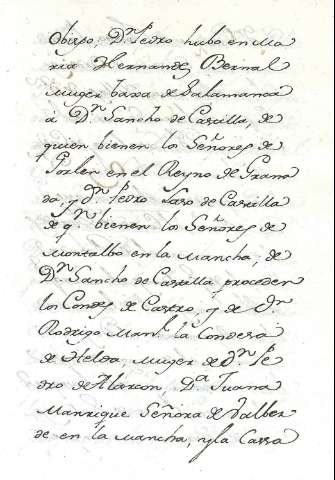 Obispo, Dn. Pedro hubo en Ma
ria Hernandez Bernal
Muger baxa de Salamanca
à Dn. Sancho de Castilla, de
quien bienen los Señores de
en el Reyno de Grana
da, y dn. Pedro Laso de Castilla
de qn. bienen los Señores de
Montalbo en la Mancha, de
Dn. Sancho de Castilla proceden
los Condes de Castro, y de dn.
Rodrigo Manl. la Condesa
de Helda Muger de dn. Pe
dro de Alarcon, Da. Juana
Manrique Señora de Valber
de en la Mancha, y la Cassa